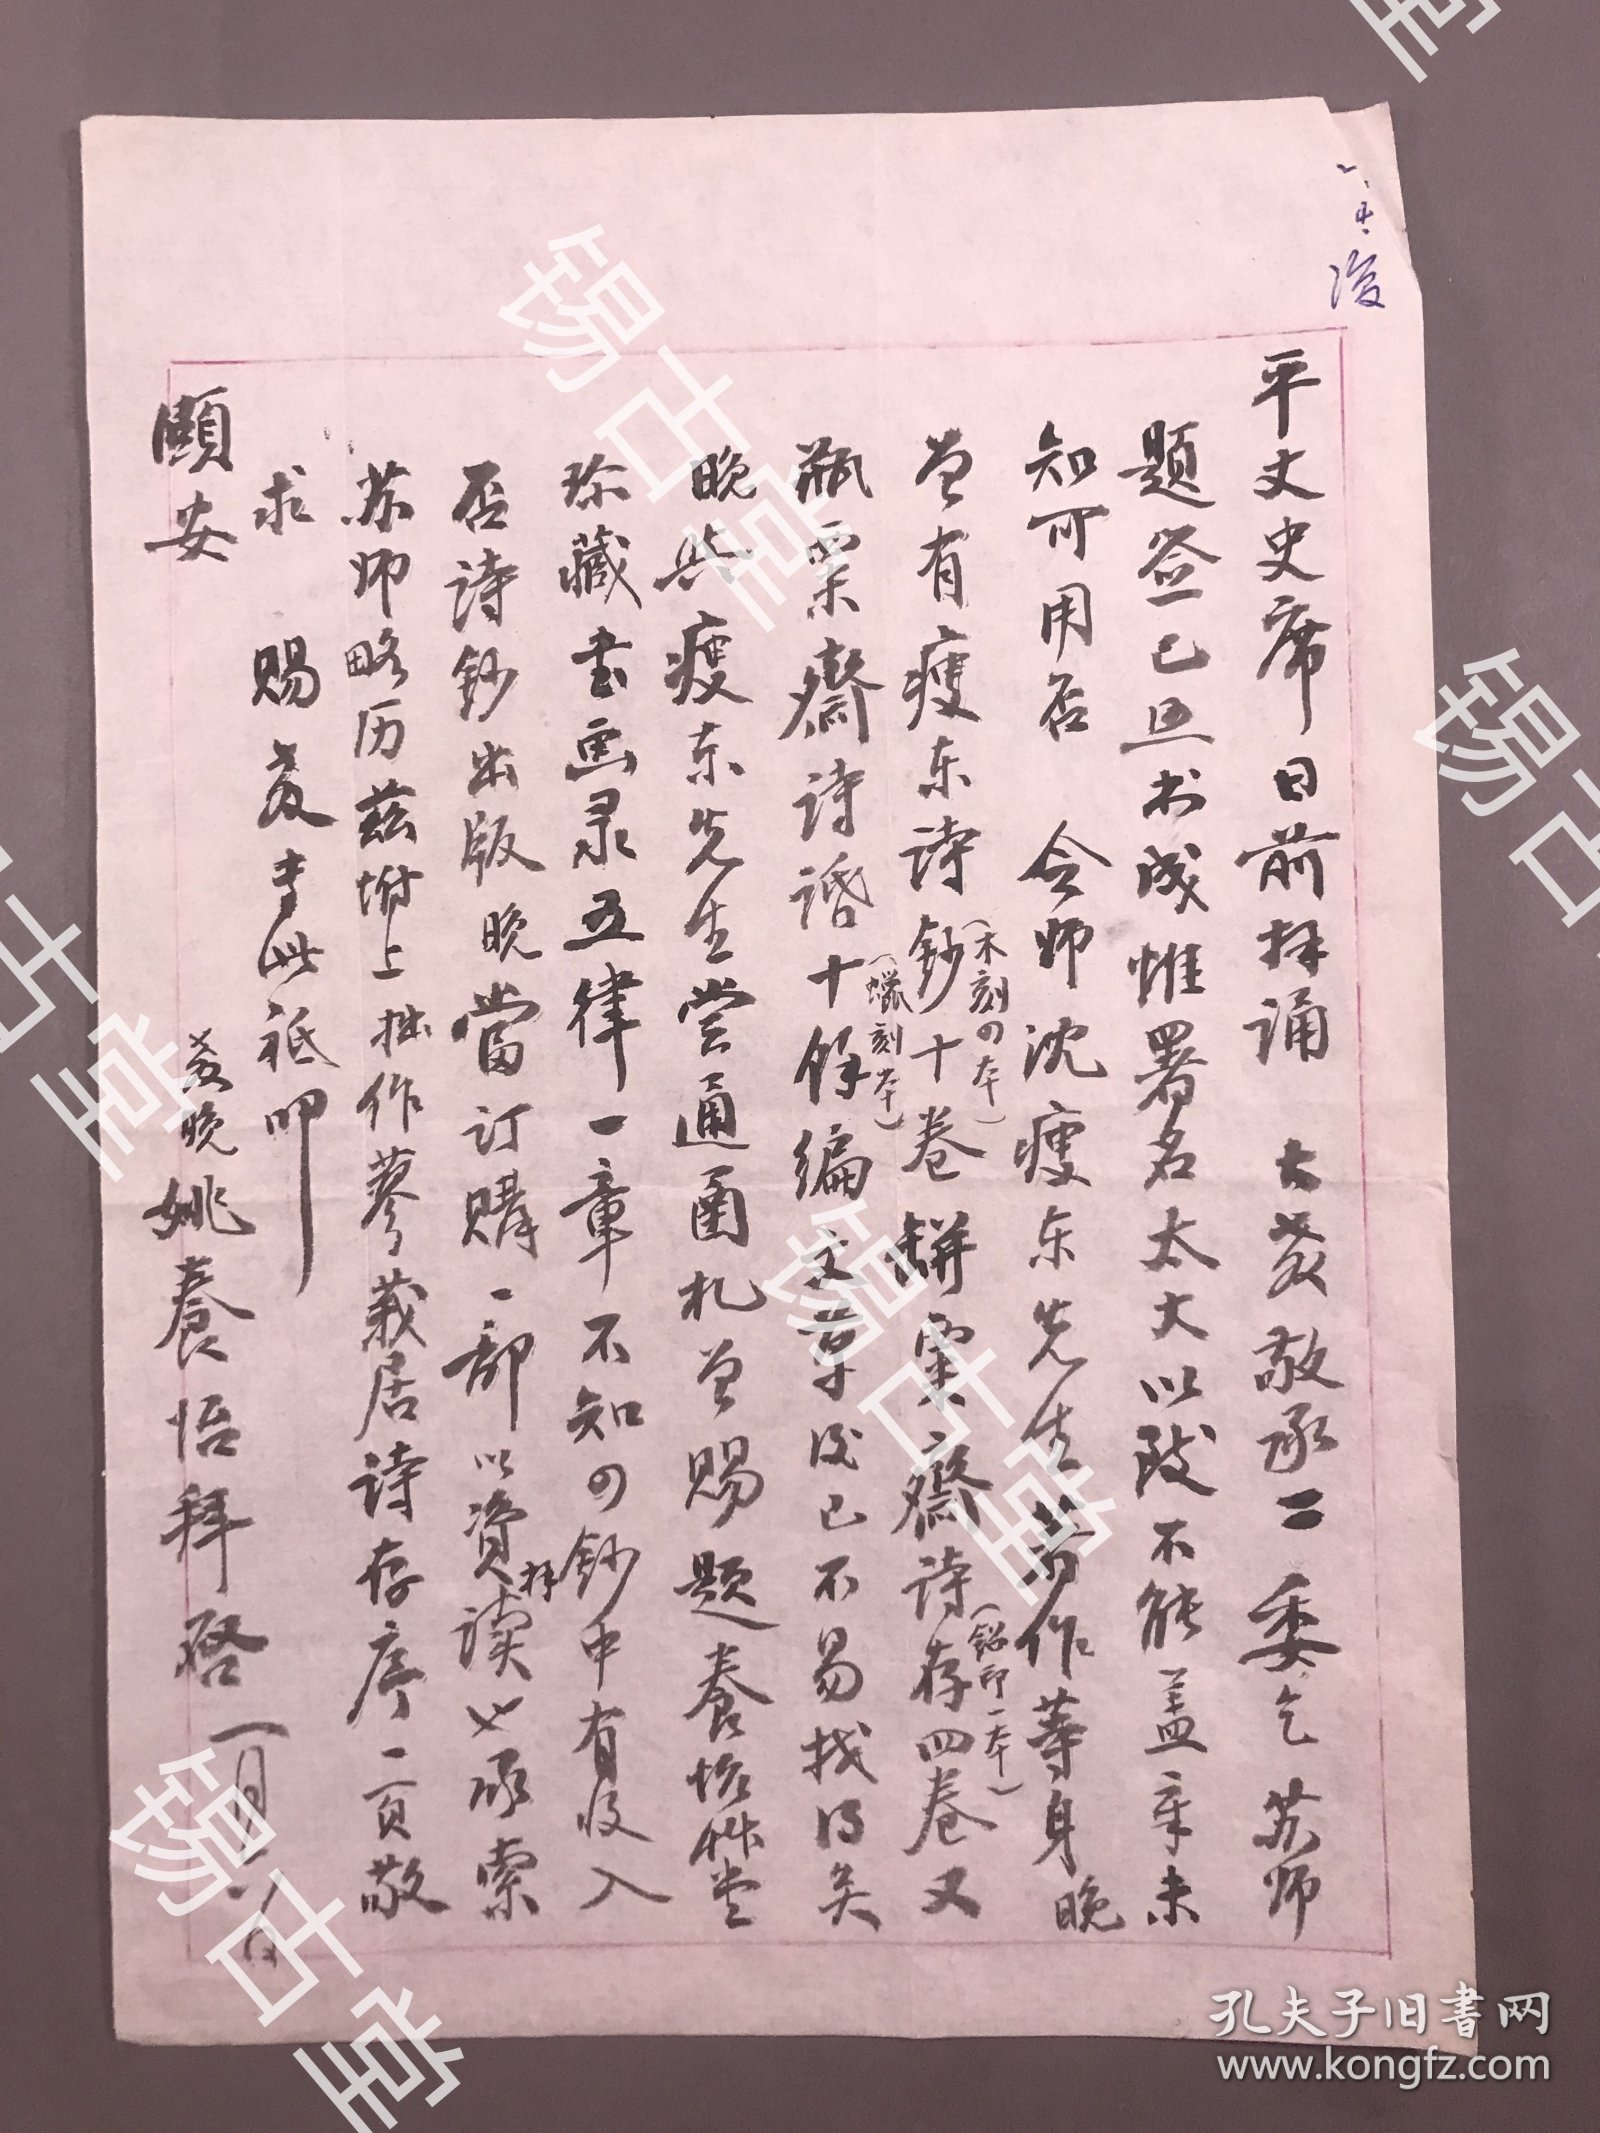 复
平丈史席日前拜诵 大教敬承二委乞 苏师
题签已写书成惟署名太大以致不能盖章未
知可用否 令师沈瘦东先生著作等身晚
曾有瘦东诗钞十卷(木刻四本)缾粟斋诗存四卷(铅印一本)又
瓶粟斋诗话十余编(蜡刻本)文革后已不易找得矣
晚与瘦东先生尝通函札曾赐题养怡草堂
珍藏书画录五律一章不知四钞中有收入
否诗钞出版晚当订购一部以资拜读如承索
苏师略历兹附上拙作蓼莪居诗存序一页敬
求 赐教专此祗叩
颐安
教晚姚养怡拜启 一月八日
锡古堂
锡古堂
锡古堂
锡古堂
锡古堂
孔夫子旧书网
www.kongfz.com